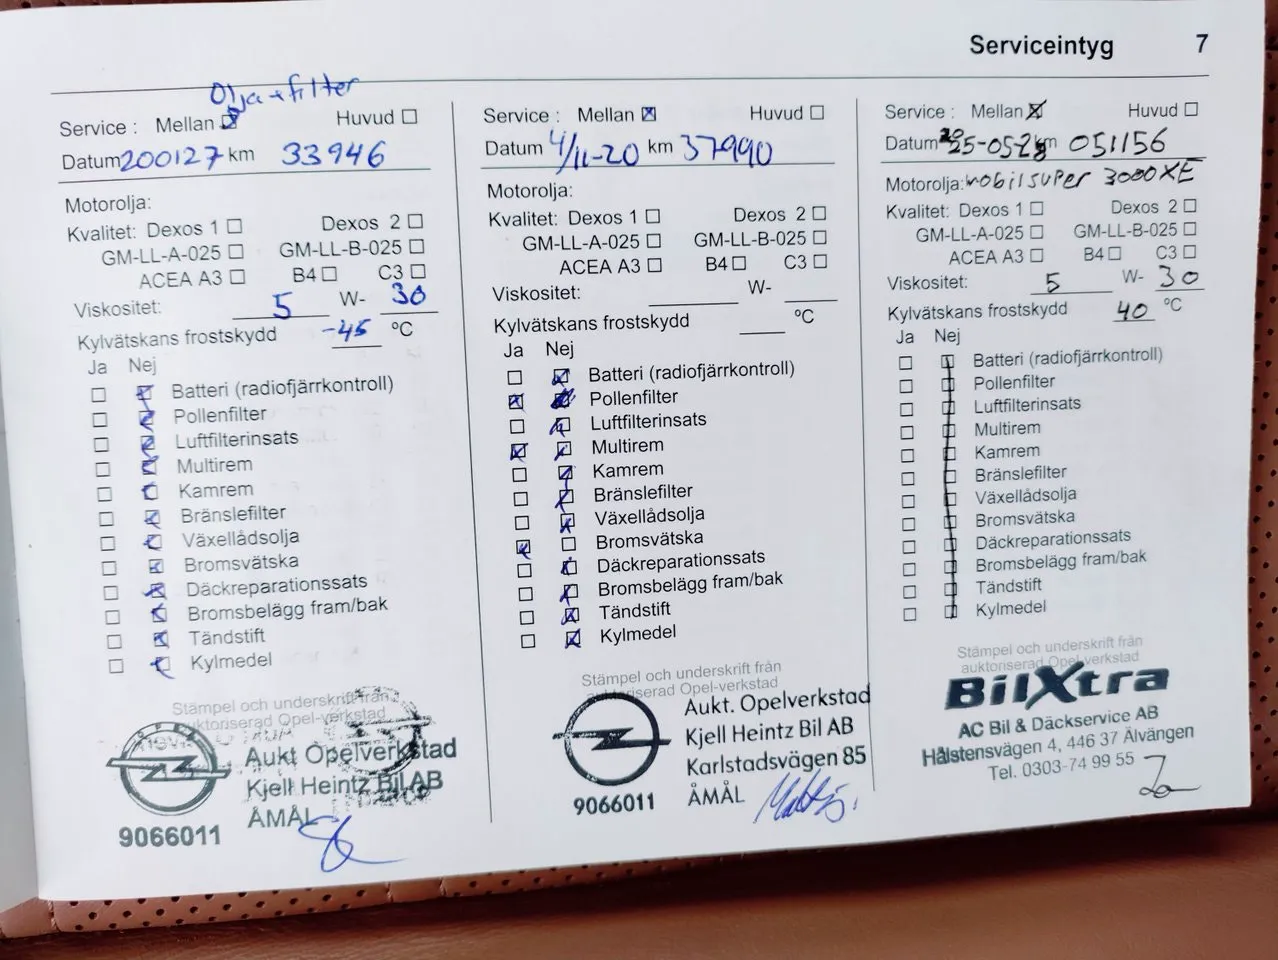 Serviceintyg 7
Olja + filter
Service : Mellan Huvud
Datum 200127 km 33946
Motorolja:
Kvalitet: Dexos 1 Dexos 2
GM-LL-A-025 GM-LL-B-025
ACEA A3 B4 C3
Viskositet: 5 W- 30
Kylvätskans frostskydd -45 °C
Ja Nej
Batteri (radiofjärrkontroll)
Pollenfilter
Luftfilterinsats
Multirem
Kamrem
Bränslefilter
Växellådsolja
Bromsvätska
Däckreparationssats
Bromsbelägg fram/bak
Tändstift
Kylmedel
Stämpel och underskrift från
auktoriserad Opel-verkstad
Aukt Opelverkstad
Kjell Heintz Bil AB
ÅMÅL
9066011
Service : Mellan Huvud
Datum 4/11-20 km 37990
Motorolja:
Kvalitet: Dexos 1 Dexos 2
GM-LL-A-025 GM-LL-B-025
ACEA A3 B4 C3
Viskositet: W-
Kylvätskans frostskydd °C
Ja Nej
Batteri (radiofjärrkontroll)
Pollenfilter
Luftfilterinsats
Multirem
Kamrem
Bränslefilter
Växellådsolja
Bromsvätska
Däckreparationssats
Bromsbelägg fram/bak
Tändstift
Kylmedel
Stämpel och underskrift från
auktoriserad Opel-verkstad
Aukt. Opelverkstad
Kjell Heintz Bil AB
Karlstadsvägen 85
ÅMÅL
9066011
Service : Mellan Huvud
Datum km 051156
Motorolja: Mobil super 3000 XE
Kvalitet: Dexos 1 Dexos 2
GM-LL-A-025 GM-LL-B-025
ACEA A3 B4 C3
Viskositet: 5 W- 30
Kylvätskans frostskydd 40 °C
Ja Nej
Batteri (radiofjärrkontroll)
Pollenfilter
Luftfilterinsats
Multirem
Kamrem
Bränslefilter
Växellådsolja
Bromsvätska
Däckreparationssats
Bromsbelägg fram/bak
Tändstift
Kylmedel
Stämpel och underskrift från
auktoriserad Opel-verkstad
BilXtra
AC Bil & Däckservice AB
Hålstensvägen 4, 446 37 Älvängen
Tel. 0303-74 99 55